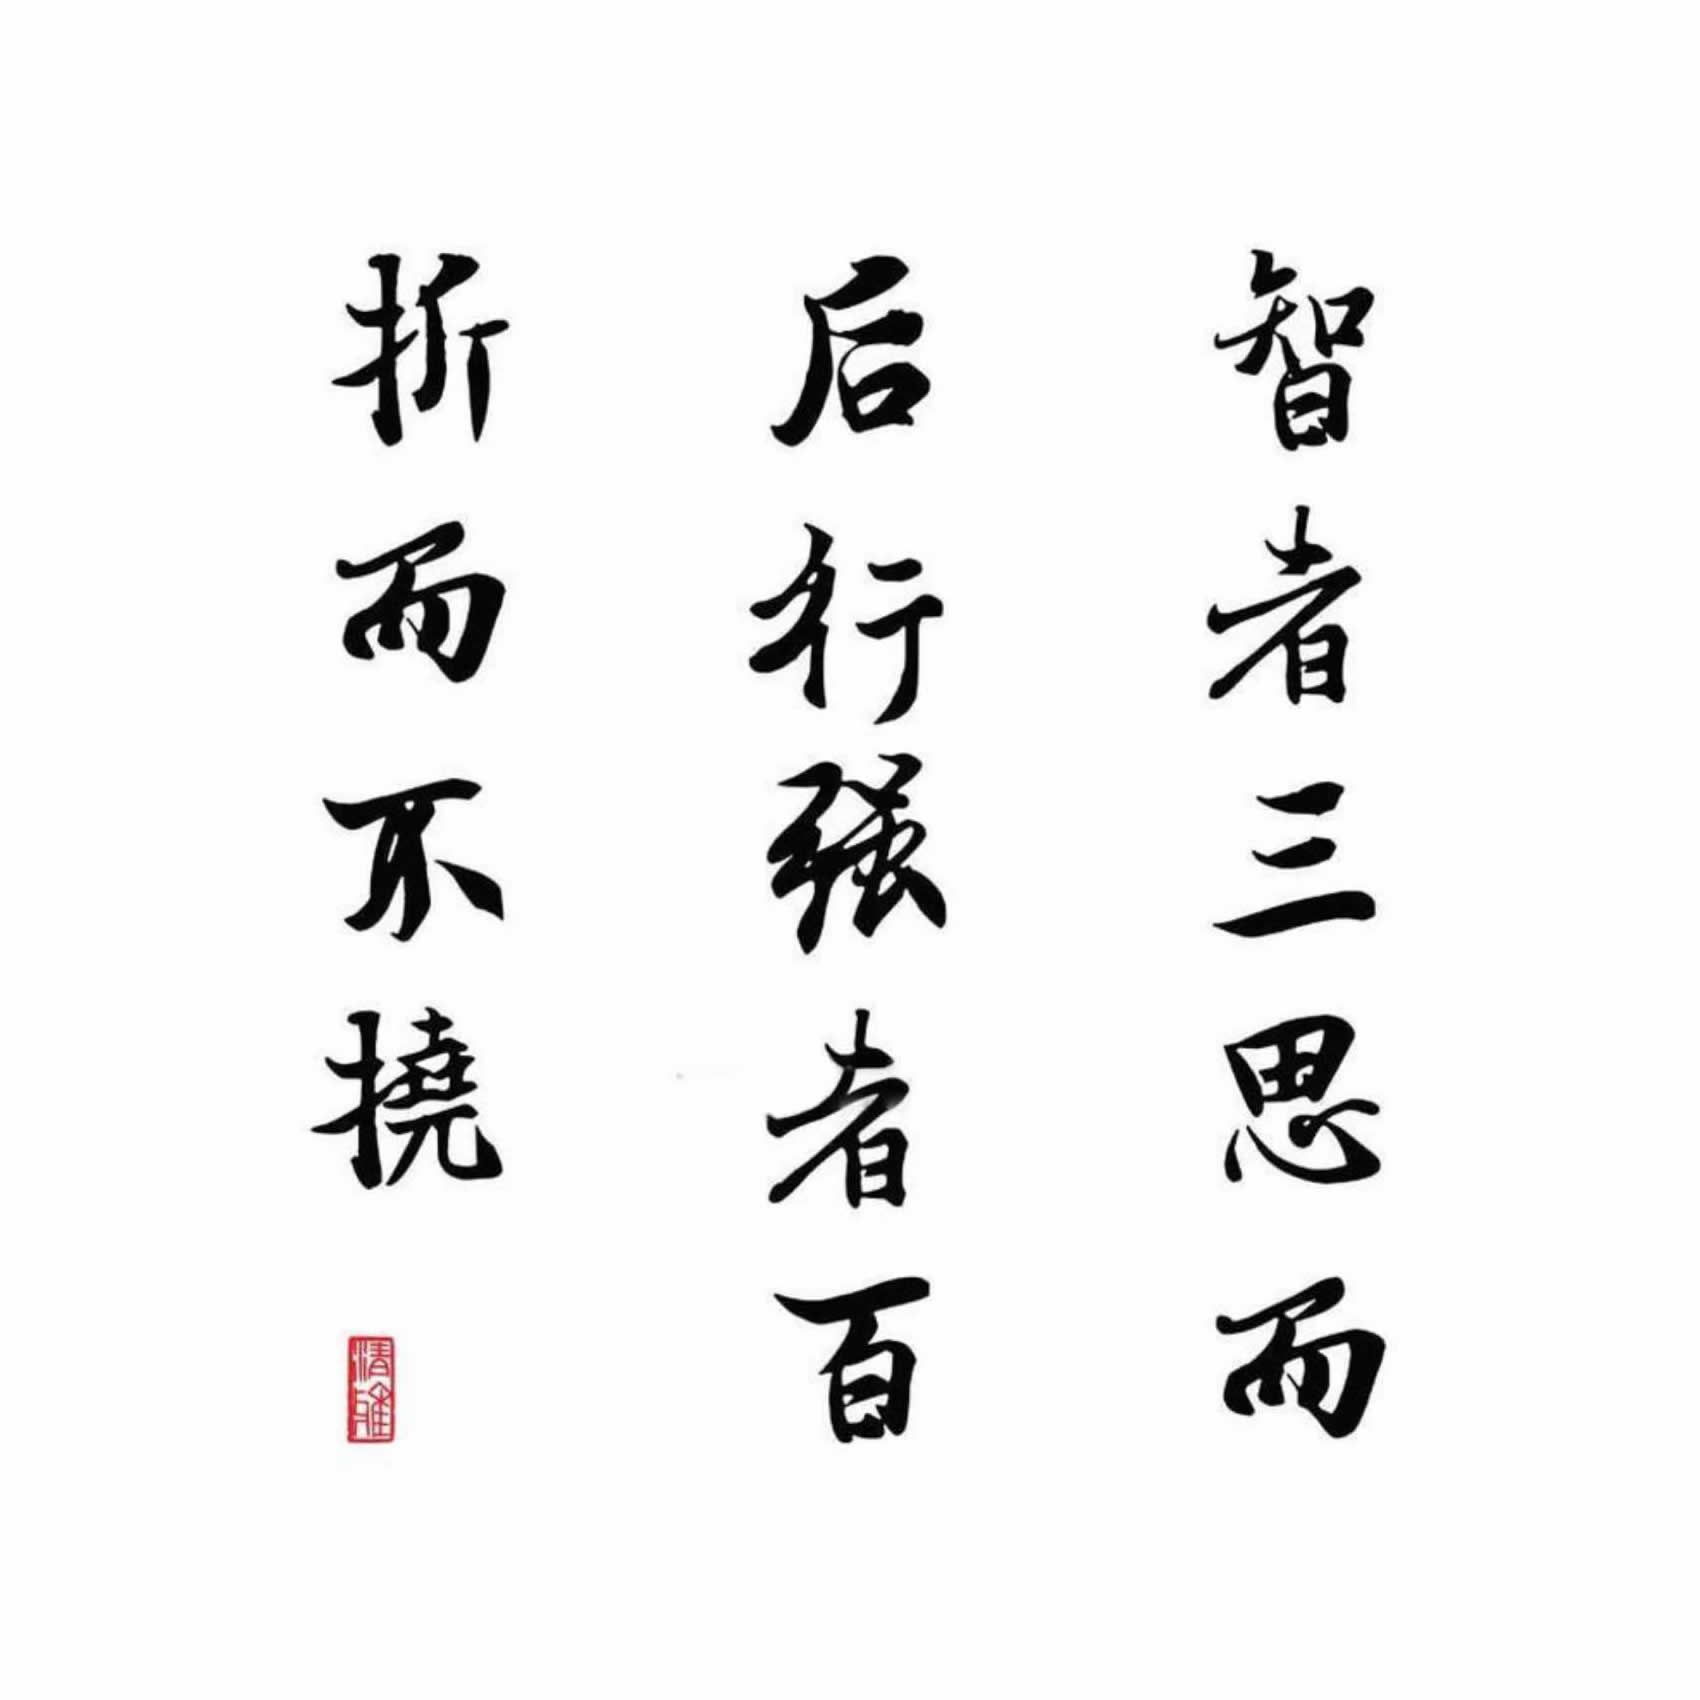 智者三思而
后行强者百
折而不撓
清雅